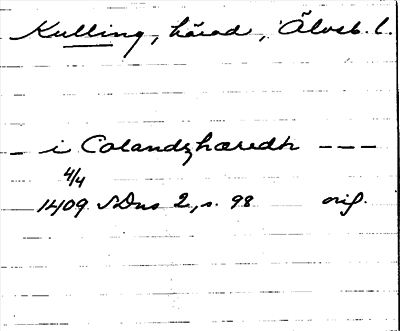 Kulling, härad, Älvsb. l.
i Colandzhæredh ---
4/4
1409 SDns 2, s. 98 orig.